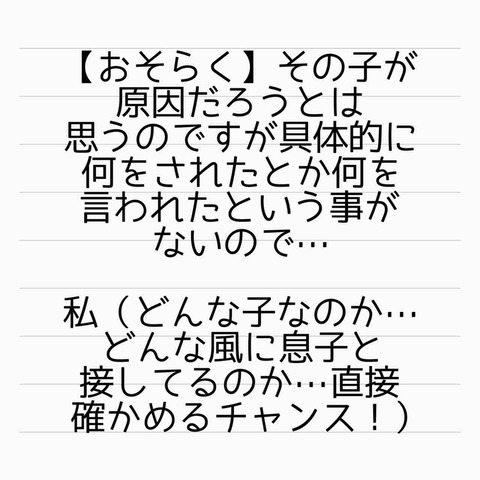 【おそらく】その子が
原因だろうとは
思うのですが具体的に
何をされたとか何を
言われたという事が
ないので…
私（どんな子なのか…
どんな風に息子と
接してるのか…直接
確かめるチャンス！）